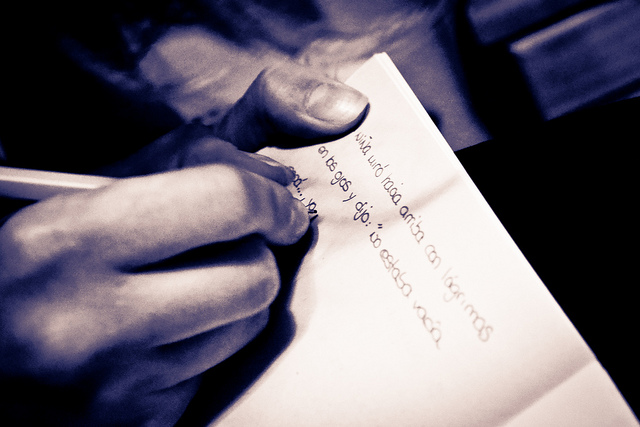 niña miró hacia arriba con lágrimas
en los ojos y dijo: "no estaba vacía